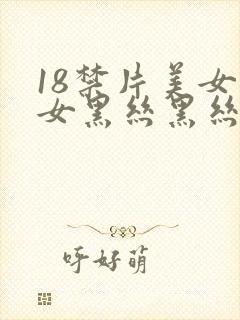 18禁片美女
女黑丝黑丝
呼好萌